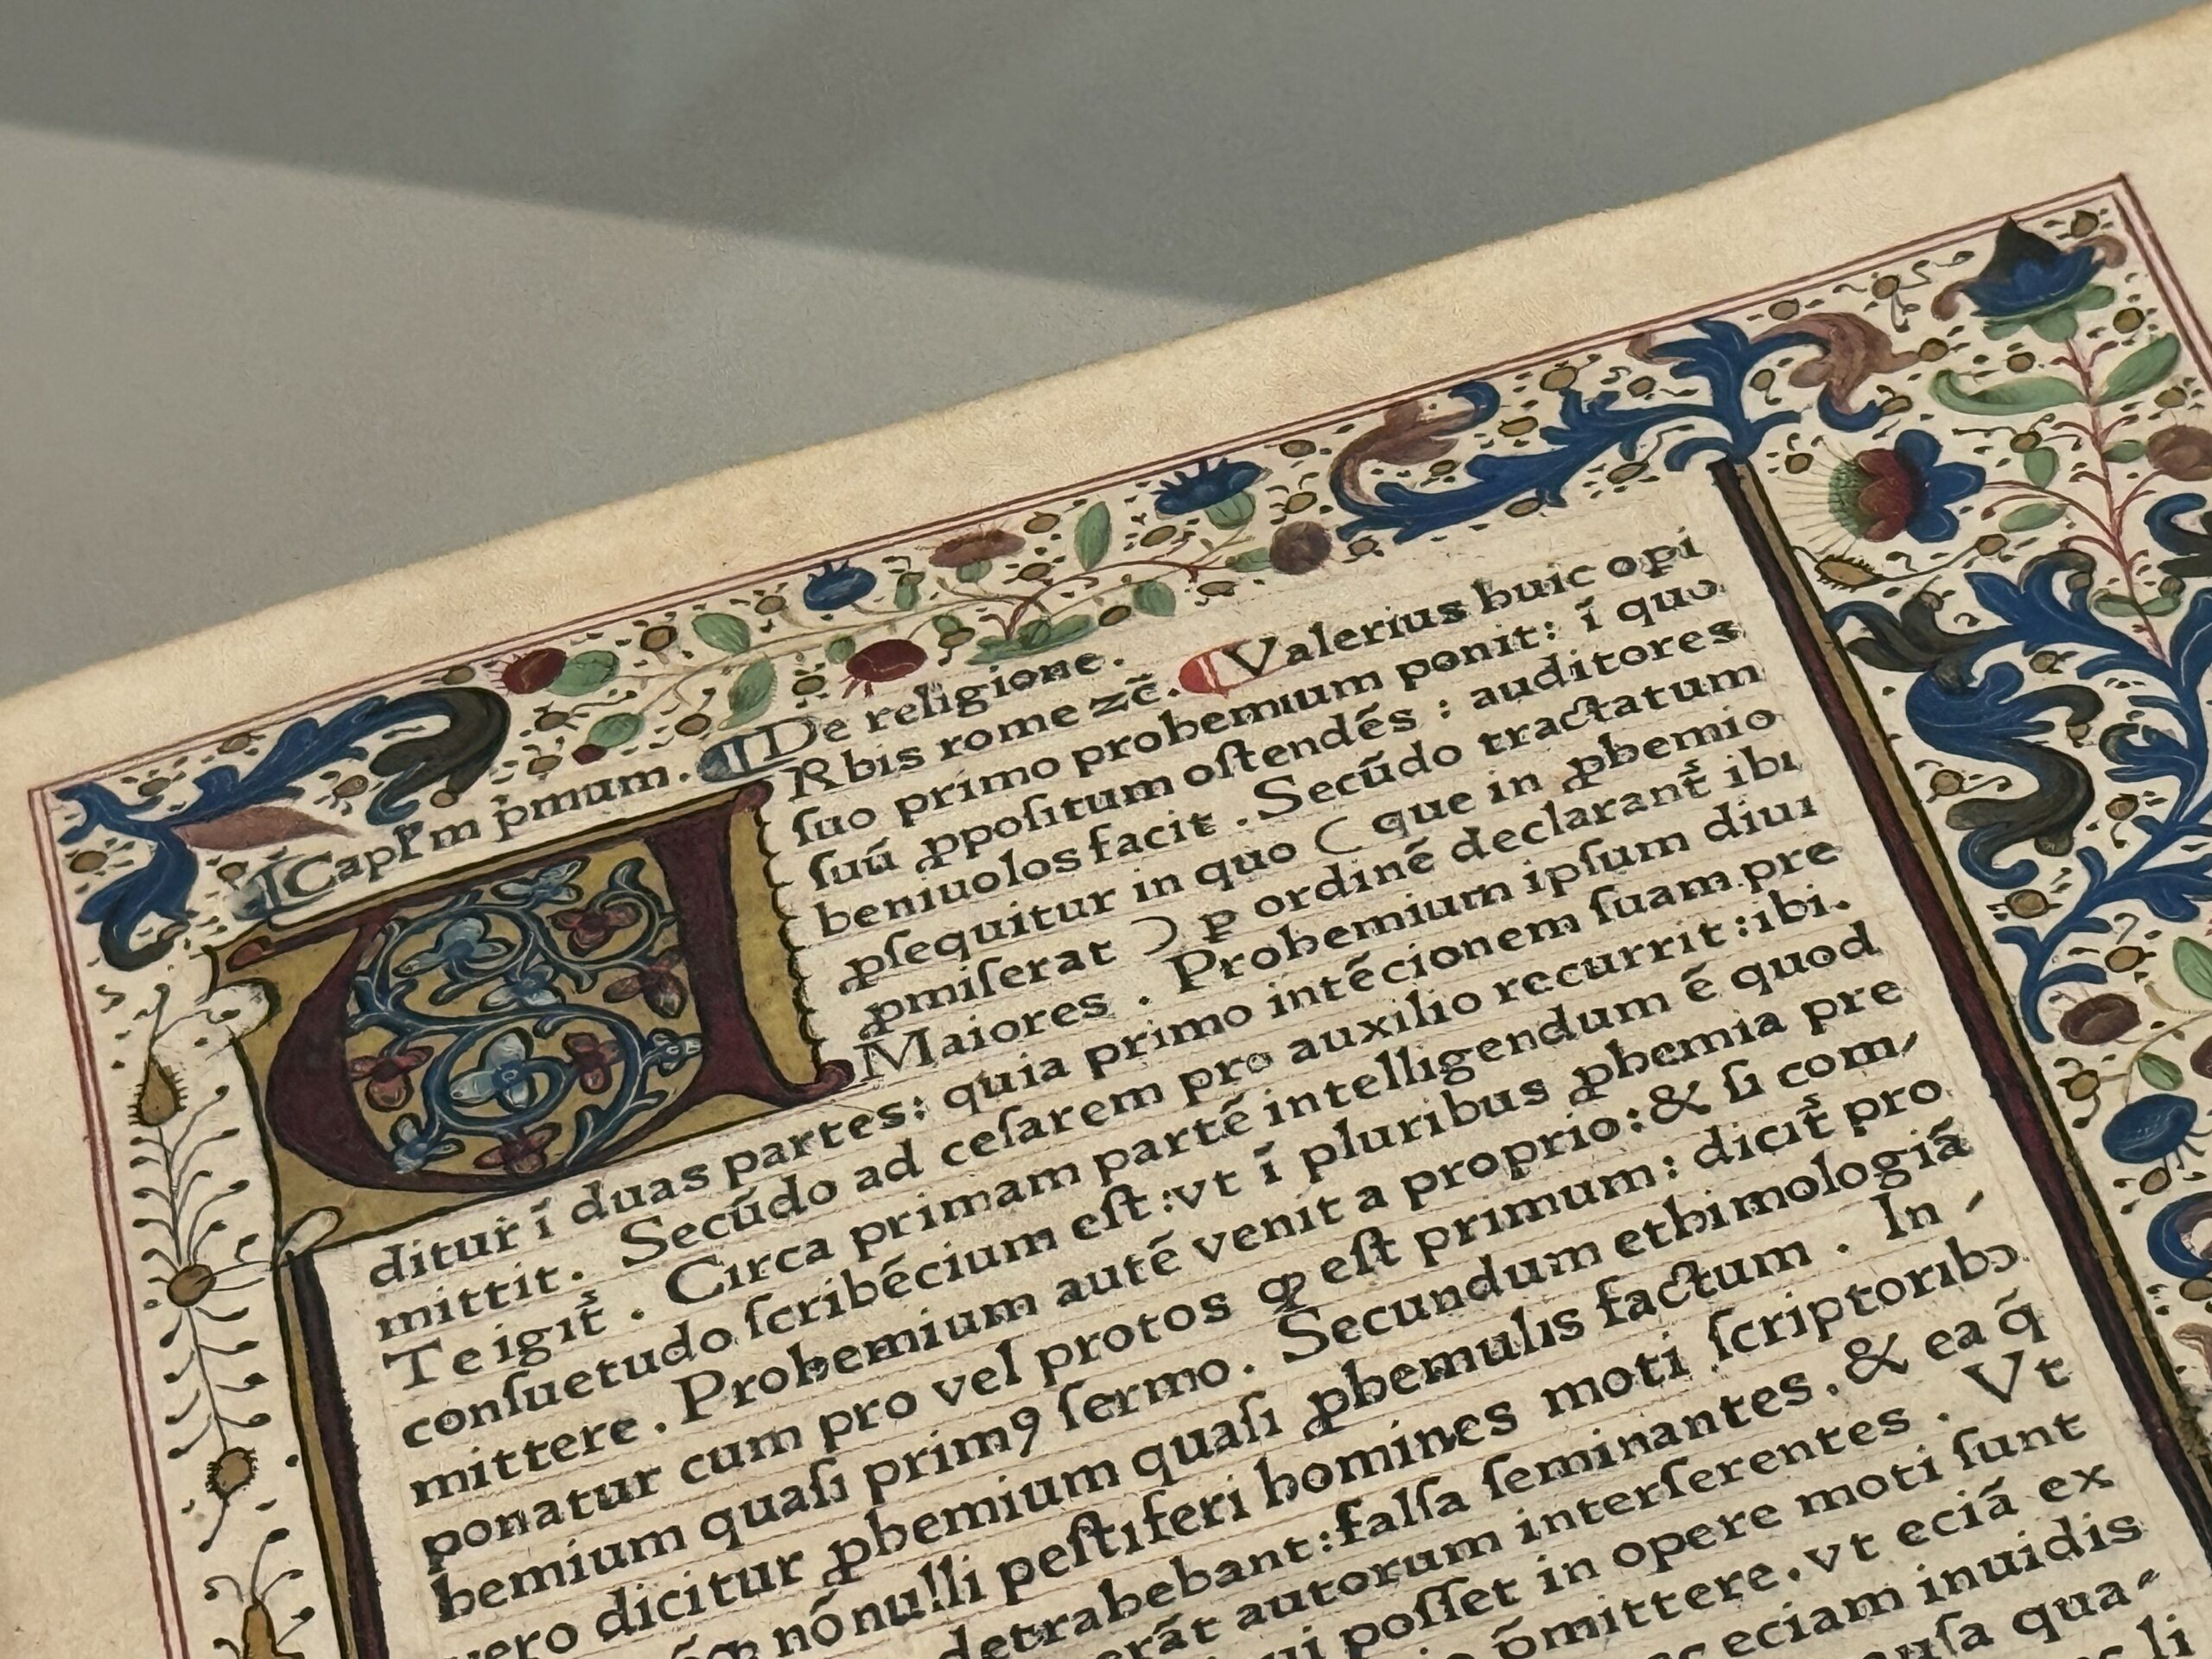 ¶Capĺ'm p̄mum. ¶De religione.
VRbis rome zc̄. ¶Valerius huic opi
ſuo primo prohemium ponit: ī quo
ſuū ꝓpoſitum oſtendēs : auditores
beniuolos facit . Secūdo tractatum
ꝓſequitur in quo ( que in ꝓhemio
ꝓmiſerat ) ꝑ ordinē declarant᷑ ibi
Maiores . Prohemium ipſum diui
ditur ī duas partes: quia primo intēcionem ſuam pre
mittit. Secūdo ad ceſarem pro auxilio recurrit: ibi.
Te igit᷑ . Circa primam partē intelligendum ē quod
conſuetudo ſcribēcium eſt: vt ī pluribus ꝓhemia pre
mittere . Prohemium autē venit a proprio: & ſi com⸗
ponatur cum pro vel protos ꝙ eſt primum: dicit᷑ pro
hemium quaſi primꝯ ſermo. Secundum ethimologiā
vero dicitur ꝓhemium quaſi ꝓhemulis factum . In⸗
nōnulli peſtiferi homines moti ſcriptoribꝰ
detrahebant: falſa ſeminantes. & ea q̄
autorum interſerentes . Vt
poſſet in opere moti ſunt
p̄mittere. vt eciā ex
eciam inuidis
qua⸗
li